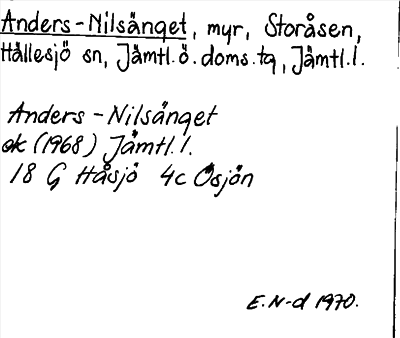 Anders-Nilsänget, myr, Storåsen,
Hällesjö sn, Jämtl.ö.doms.tg, Jämtl.l.
Anders-Nilsänget
ek (1968) Jämtl.l.
18 G Håsjö 4c Ösjön
E.N-d 1970.